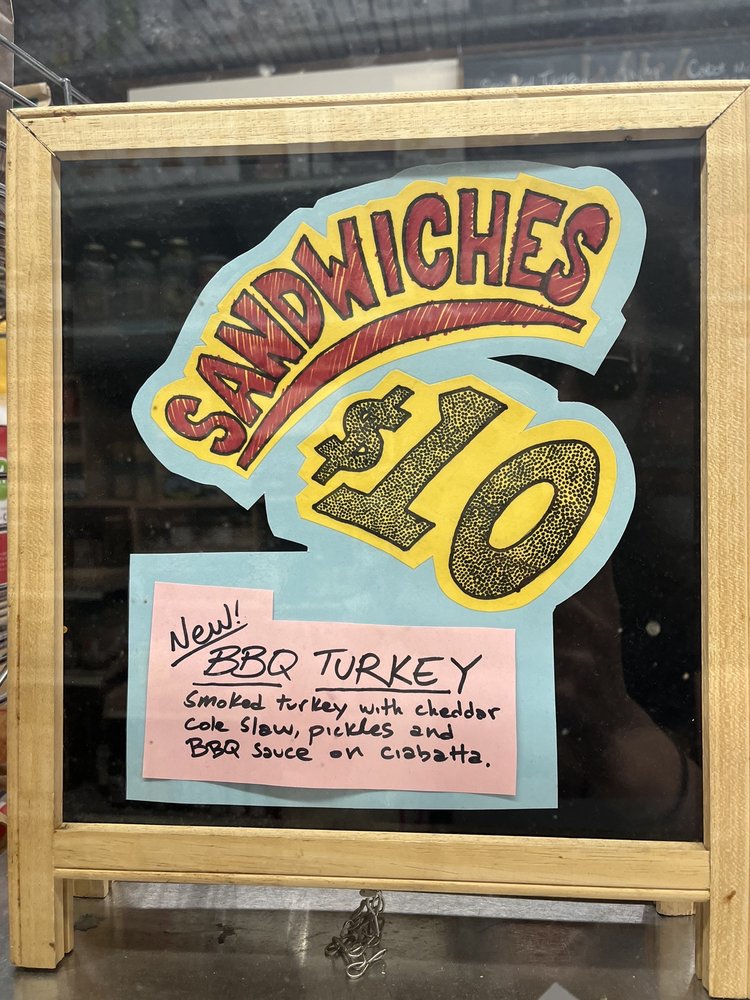 SANDWICHES
$10
New!
BBQ TURKEY
Smoked turkey with cheddar
cole slaw, pickles and
BBQ sauce on ciabatta.